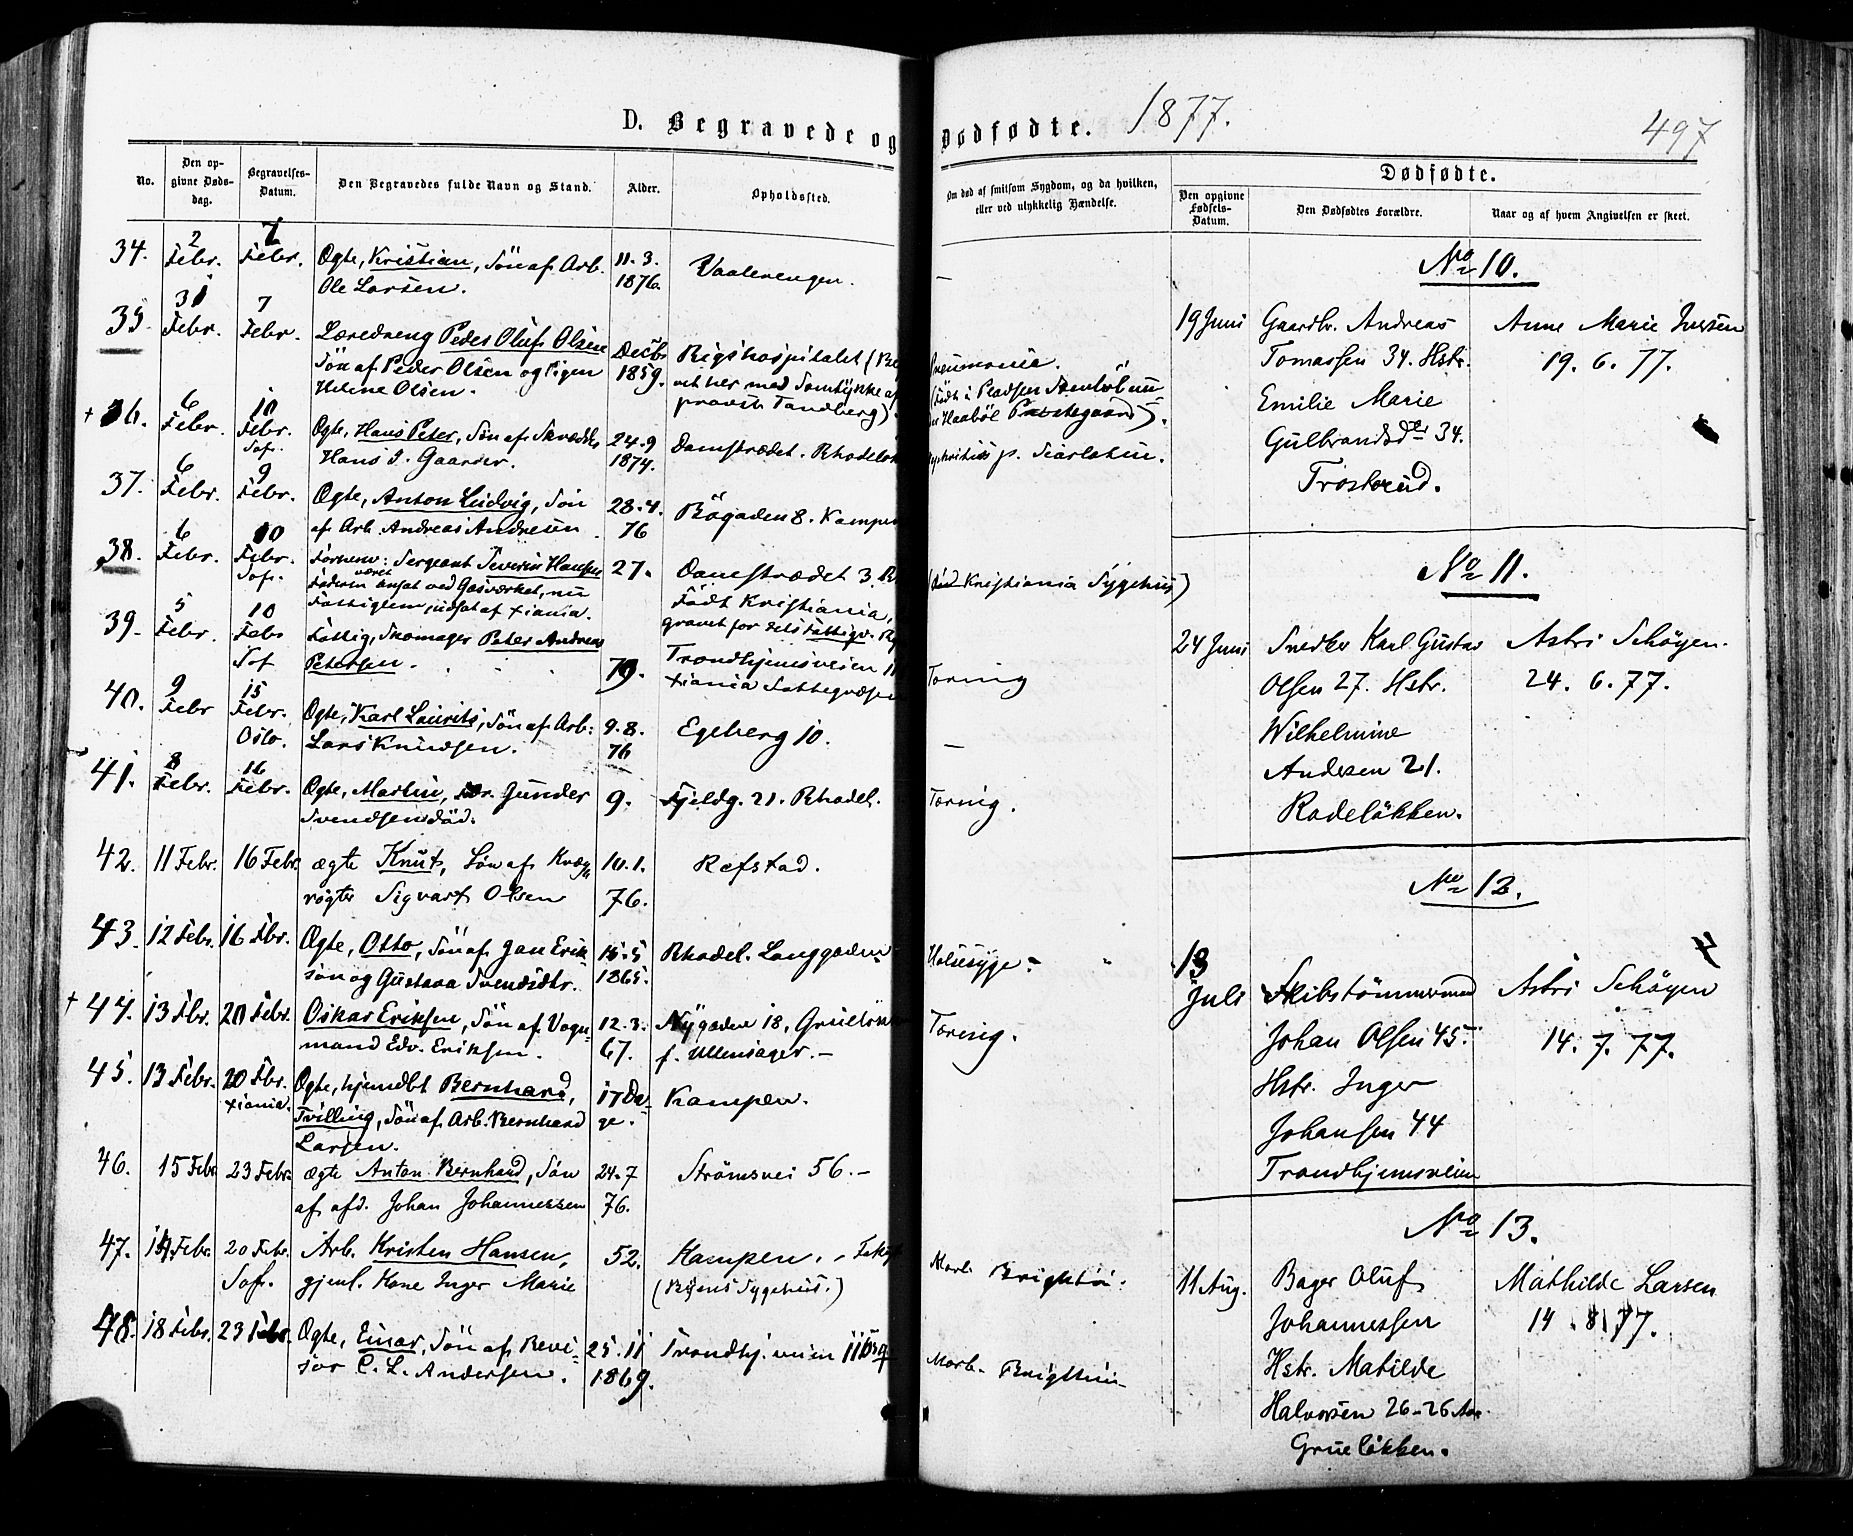 D. Begravede og Dødfødte. 1877.
497
No.
Den opgivne Dødsdag.
Begravelses-Datum.
Den Begravedes fulde Navn og Stand.
Alder.
Opholdssted.
Om død af smitsom Sygdom, og da hvilken,
eller ved ulykkelig Hændelse.
Dødfødte.
Den opgivne Fødsels-Datum.
Den Dødfødtes Forældre.
Naar og af hvem Angivelsen er skeet.
34. 2 Febr. 7 Febr. Ægte, Kristian, Søn af Arb. 11. 3. Vaalerengen. —
Ole Larsen. 1876.
35. 31 Febr. 7 Febr. Læredreng Peder Oluf Olsen Decbr Rigshospitalet
Søn af Peder Olsen og Pigen 1859. med Samtykke af Pneumonia.
Helene Olsen. provst Tandberg). Prestegaard).
+ 36. 6 Febr. 10 Febr. Sof. Ægte, Hans Peter, Søn af Skrædder 24.9 Damstrædet. Rhodeløk p. Scarlatin.
Hans J. Gaarder. 1874.
37. 6 Febr. 9 Febr. Ægte, Anton Ludvig, Søn 28.4. Bøgaden 8. Kampen
af Arb. Andreas Andresen 76
38. 6 Febr. 10 Febr. Sof. Fornenv. Sergeant Severin Hansen 27. Damstrædet 3. (Kristiania Sygehus)
været ansat ved Gasværket, nu Født Kristiania,
Fattiglem, udsat af Xiania.
39. 5 Febr. 10 Febr Sof Fattig, Skomager Peter Andreas
Petersen. 79. Trondhjemsveien 11 Tæring
Xiania Fattigvæsen
40. 9 Febr 15 Febr. Oslo. Ægte, Karl Laurits, Søn af Arb: 9.8. Egeberg 10. —
Lars Knudsen. 76
41. 8 Febr. 16 Febr. Ægte, Martin, Gunder 9. Fjeldg. 21. Rhodel. Tæring.
Svendsen død.
42. 11 Febr. 16 Febr. ægte Knut, Søn af Kvæg- 10.1. Refstad.
røgter Sigvart Olsen 76.
43. 12 Febr. 16 Fbr. Ægte, Otto, Søn af Jan Erik- 15.5 Rhodel. Langgaden Halsesyge.
søn og Gustava Svendsdtr. 1865.
+ 44. 13 Fbr. 20 Febr. Oskar Eriksen, Søn af Vogn- 12.3. Nygaden 18, Grueløk Tæring.
mand Edv. Eriksen. 67. f. Ullensager. —
45. 13 Febr. 20 Fbr. Xiania. Ægte, hjemdøbt Bernhard, 17 Da- Kampen.
Tvilling, Søn af Arb. Bernhard ge.
Larsen.
46. 15 Febr 23 Febr. ægte Anton Bernhard, Søn 24.7 Strömsvei 56. —
af afd. Johan Johannessen 76.
47. 14 Febr. 20 Febr. Sof. Arb. Kristen Hansen, 52. Kampen. Morb. Brightii.
gjenl. Kone Inger Marie (Byens Sygehus.)
48. 18 Febr. 23 Febr. Ægte, Einar, Søn af Revi- 25.11 Trondhj. veien 110 Morb. Brigthii —
sor C. L. Andersen. 1869.
No 10.
19 Juni Gaardbr. Andreas Anne Marie Iversen
Tomassen 34. Hstr. 19. 6. 77.
Emilie Marie
Gulbrandsdtr 34.
Trosterud.
No 11.
24 Juni Snedker Karl Gustav Astri Schøyen.
Olsen 27. Hstr. 24. 6. 77.
Wilhelmine
Andersen 21.
Rodeløkken.
No 12.
13 Juli Skibstømmermand Astri Schøyen
Johan Olsen 45. 14. 7. 77.
Hstr. Inger
Johansen 44
Trondhjemsveien
No 13.
11 Aug. Bager Oluf Mathilde Larsen
Johannessen 14. 8. 77.
Hstr. Matilde
Halvorsen 26-26 Aar.
Grueløkken.